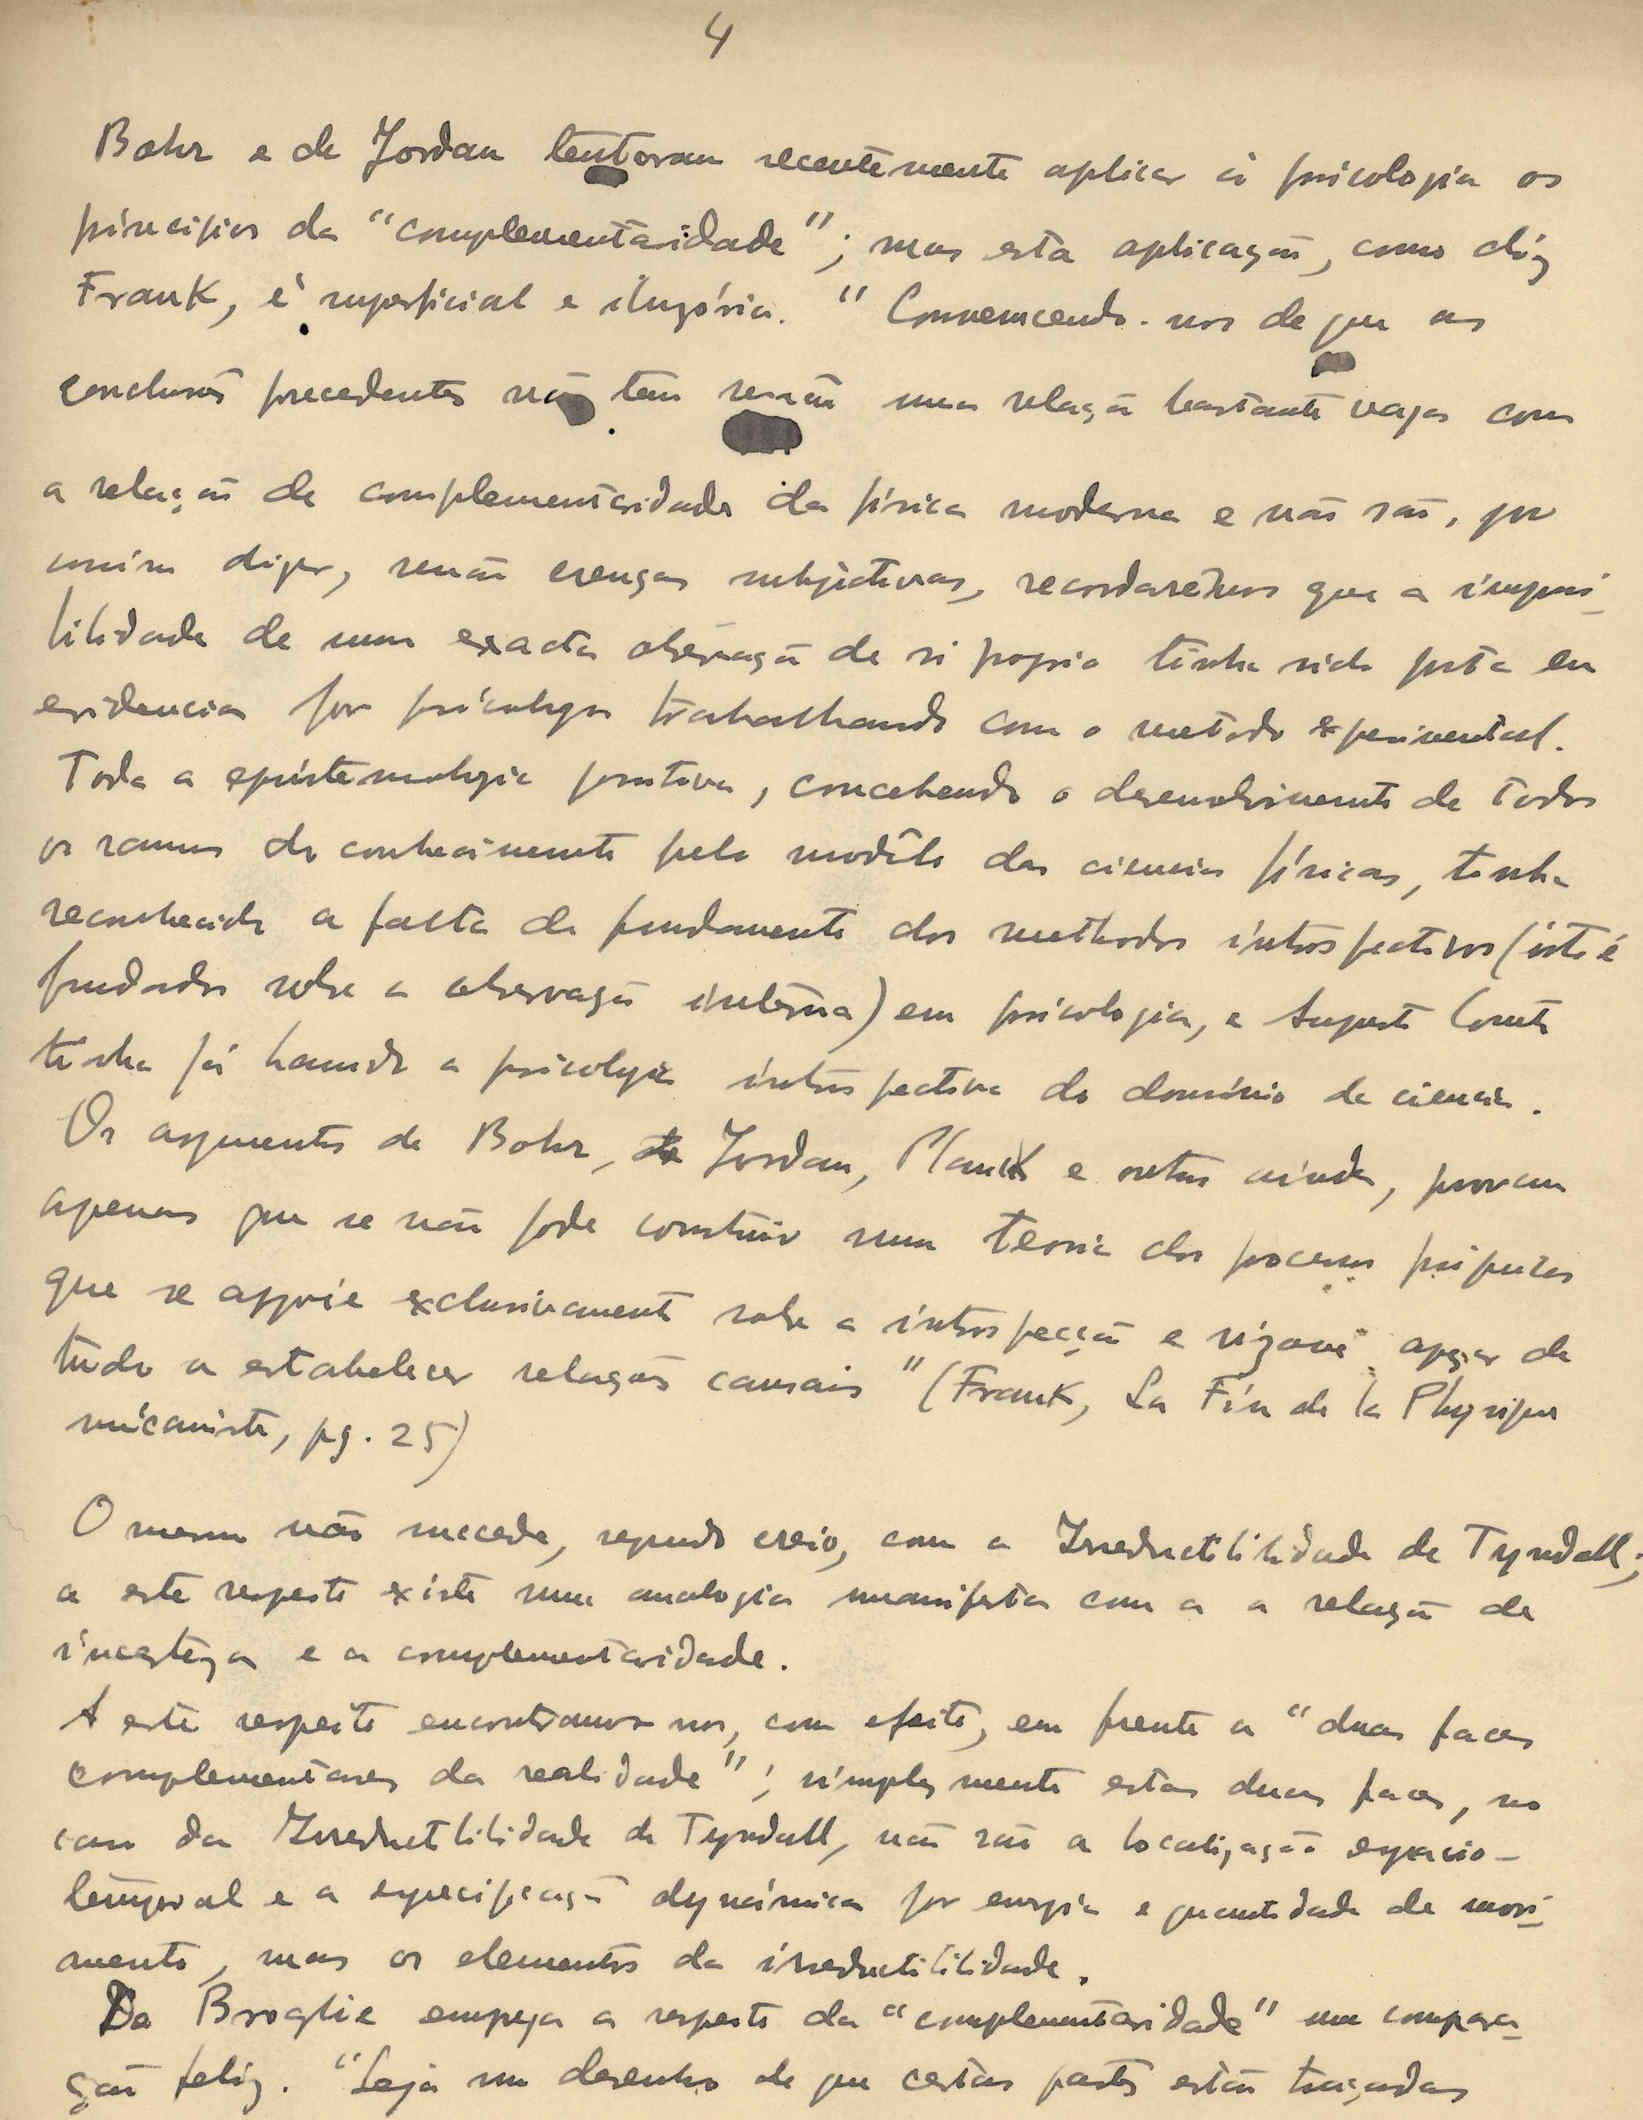 4
Bohr e de Jordan tentaram recentemente aplicar à psicologia os
princípios da "complementaridade"; mas esta aplicação, como diz
Frank, é superficial e ilusória. "Convencendo-nos de que as
conclusões precedentes não tem senão uma relação bastante vaga com
a relação de complementaridade da física moderna e não são, por
assim dizer, senão crenças subjectivas, recordaremos que a impossi-
bilidade de uma exacta observação de si proprio tinha sido posta em
evidencia por psicologos trabalhando com o metodo experimental.
Toda a epistemologia positiva, concebendo o desenvolvimento de todos
os ramos do conhecimento pelo modêlo das ciencias físicas, tinha
reconhecido a falta de fundamento dos methodos introspectivos (isto é
fundados sobre a observação interna) em psicologia, e Augusto Comte
tinha já banido a psicologia introspectiva do domínio da ciencia.
Os argumentos de Bohr, de Jordan, Planck e outros ainda, provam
apenas que se não pode construir uma teoria dos processos psiquicos
que se appoie exclusivamente sobre a introspecção e vizasse apezar de
tudo a estabelecer relações causais" (Frank, La Fin de la Physique
mécaniste, pg. 25)
O mesmo não sucede, segundo creio, com a Irreductibilidade de Tyndall;
a este respeito existe uma analogia manifesta com a a relação de
incerteza e a complementaridade.
A este respeito encontramo-nos, com efeito, em frente a "duas faces
complementares da realidade"; simplesmente estas duas faces, no
caso da Irreductbilidade de Tyndall, não são a localização espacio-
temporal e a especificação dynâmica por energia e quantidade de movi-
mento, mas os elementos da irreductibilidade.
De Broglie emprega a respeito da "complementaridade" uma compara-
ção feliz. "Seja um desenho de que certas partes estão traçadas